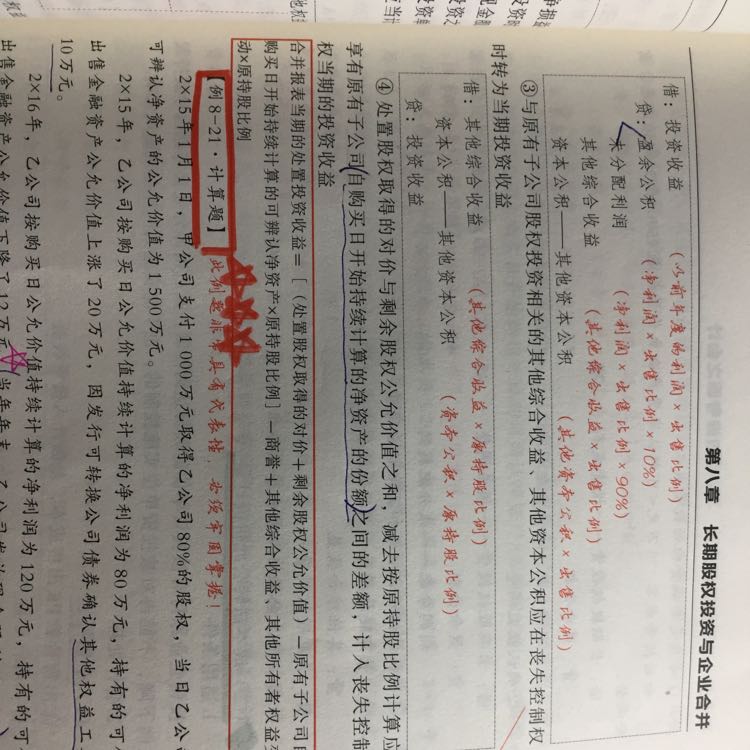 第八章 长期股权投资与企业合并
借：投资收益 （以前年度的利润×出售比例）
贷：盈余公积 （净利润×出售比例×10%）
未分配利润 （净利润×出售比例×90%）
其他综合收益 （其他综合收益×出售比例）
资本公积——其他资本公积 （其他资本公积×出售比例）
③与原有子公司股权投资相关的其他综合收益、其他资本公积应在丧失控制权
时转为当期投资收益
借：其他综合收益 （其他综合收益×原持股比例）
资本公积——其他资本公积 （资本公积×原持股比例）
贷：投资收益
④处置股权取得的对价与剩余股权公允价值之和，减去按原持股比例计算应
享有原有子公司自购买日开始持续计算的净资产的份额之间的差额，计入丧失控制
权当期的投资收益
合并报表当期的处置投资收益＝［（处置股权取得的对价＋剩余股权公允价值）－原有子公司自
购买日开始持续计算的可辨认净资产×原持股比例］－商誉＋其他综合收益、其他所有者权益变
动×原持股比例
【例8-21·计算题】 此例题非常具有代表性，必须牢固掌握！
2×15年1月1日，甲公司支付1 000万元取得乙公司80%的股权，当日乙公
可辨认净资产的公允价值为1 500万元。
2×15年，乙公司按购买日公允价值持续计算的净利润为80万元，持有的可
出售金融资产公允价值上涨了20万元，因发行可转换公司债券确认其他权益工
10万元。
2×16年，乙公司按购买日公允价值持续计算的净利润为120万元，持有的可
出售金融资产公允价值下降了12万元